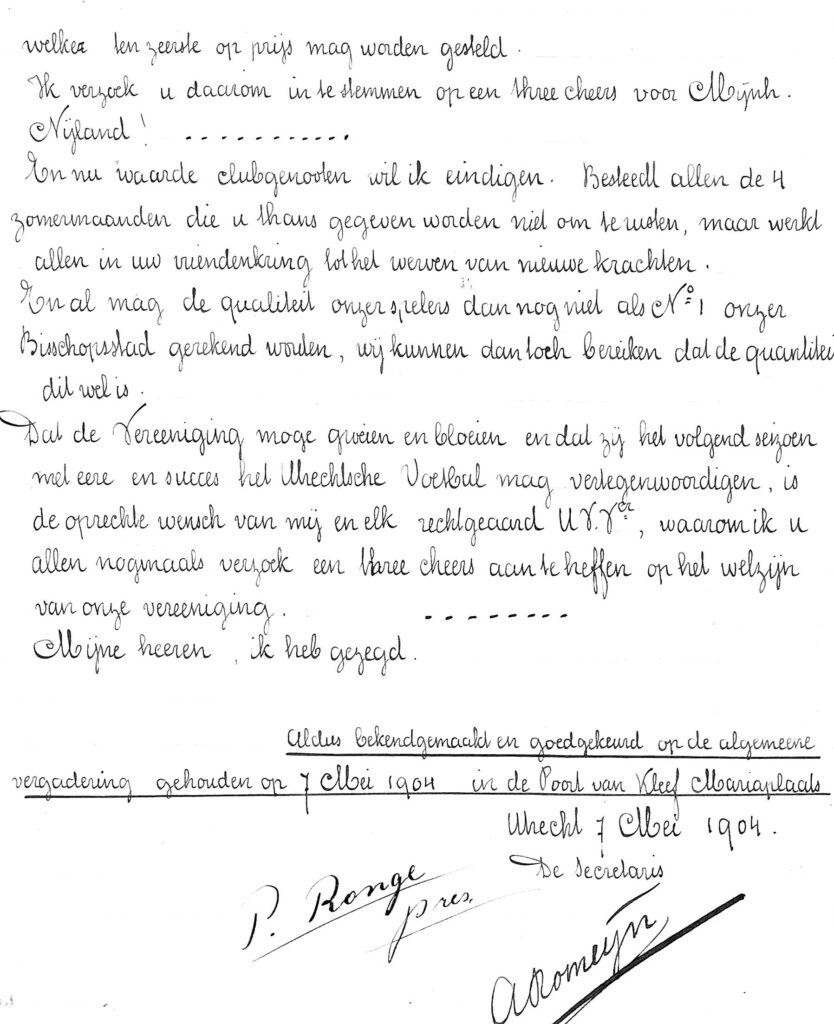 welke ten zeerste op prijs mag worden gesteld.
Ik verzoek u daarom in te stemmen op een three cheers voor Mijnh.
Nijland! ...........
En nu waarde clubgenooten wil ik eindigen. Besteedt allen de 4
zomermaanden die u thans gegeven worden niet om te rusten, maar werkt
allen in uw vriendenkring tot het werven van nieuwe krachten.
En al mag de qualiteit onzer spelers dan nog niet als No 1 onzer
Bisschopsstad gerekend worden, wij kunnen dan toch bereiken dat de quantiteit
dit wel is.
Dat de Vereeniging moge groeien en bloeien en dat zij het volgend seizoen
met eere en succes het Utrechtsche Voetbal mag vertegenwoordigen, is
de oprechte wensch van mij en elk rechtgeaard U.V.V.er, waarom ik u
allen nogmaals verzoek een three cheers aan te heffen op het welzijn
van onze vereeniging. .........
Mijne heeren, ik heb gezegd.
Aldus bekendgemaakt en goedgekeurd op de algemeene
vergadering gehouden op 7 Mei 1904 in de Poort van Kleef Mariaplaats
Utrecht 7 Mei 1904.
De Secretaris
P. Range
pres.
A Romeijn